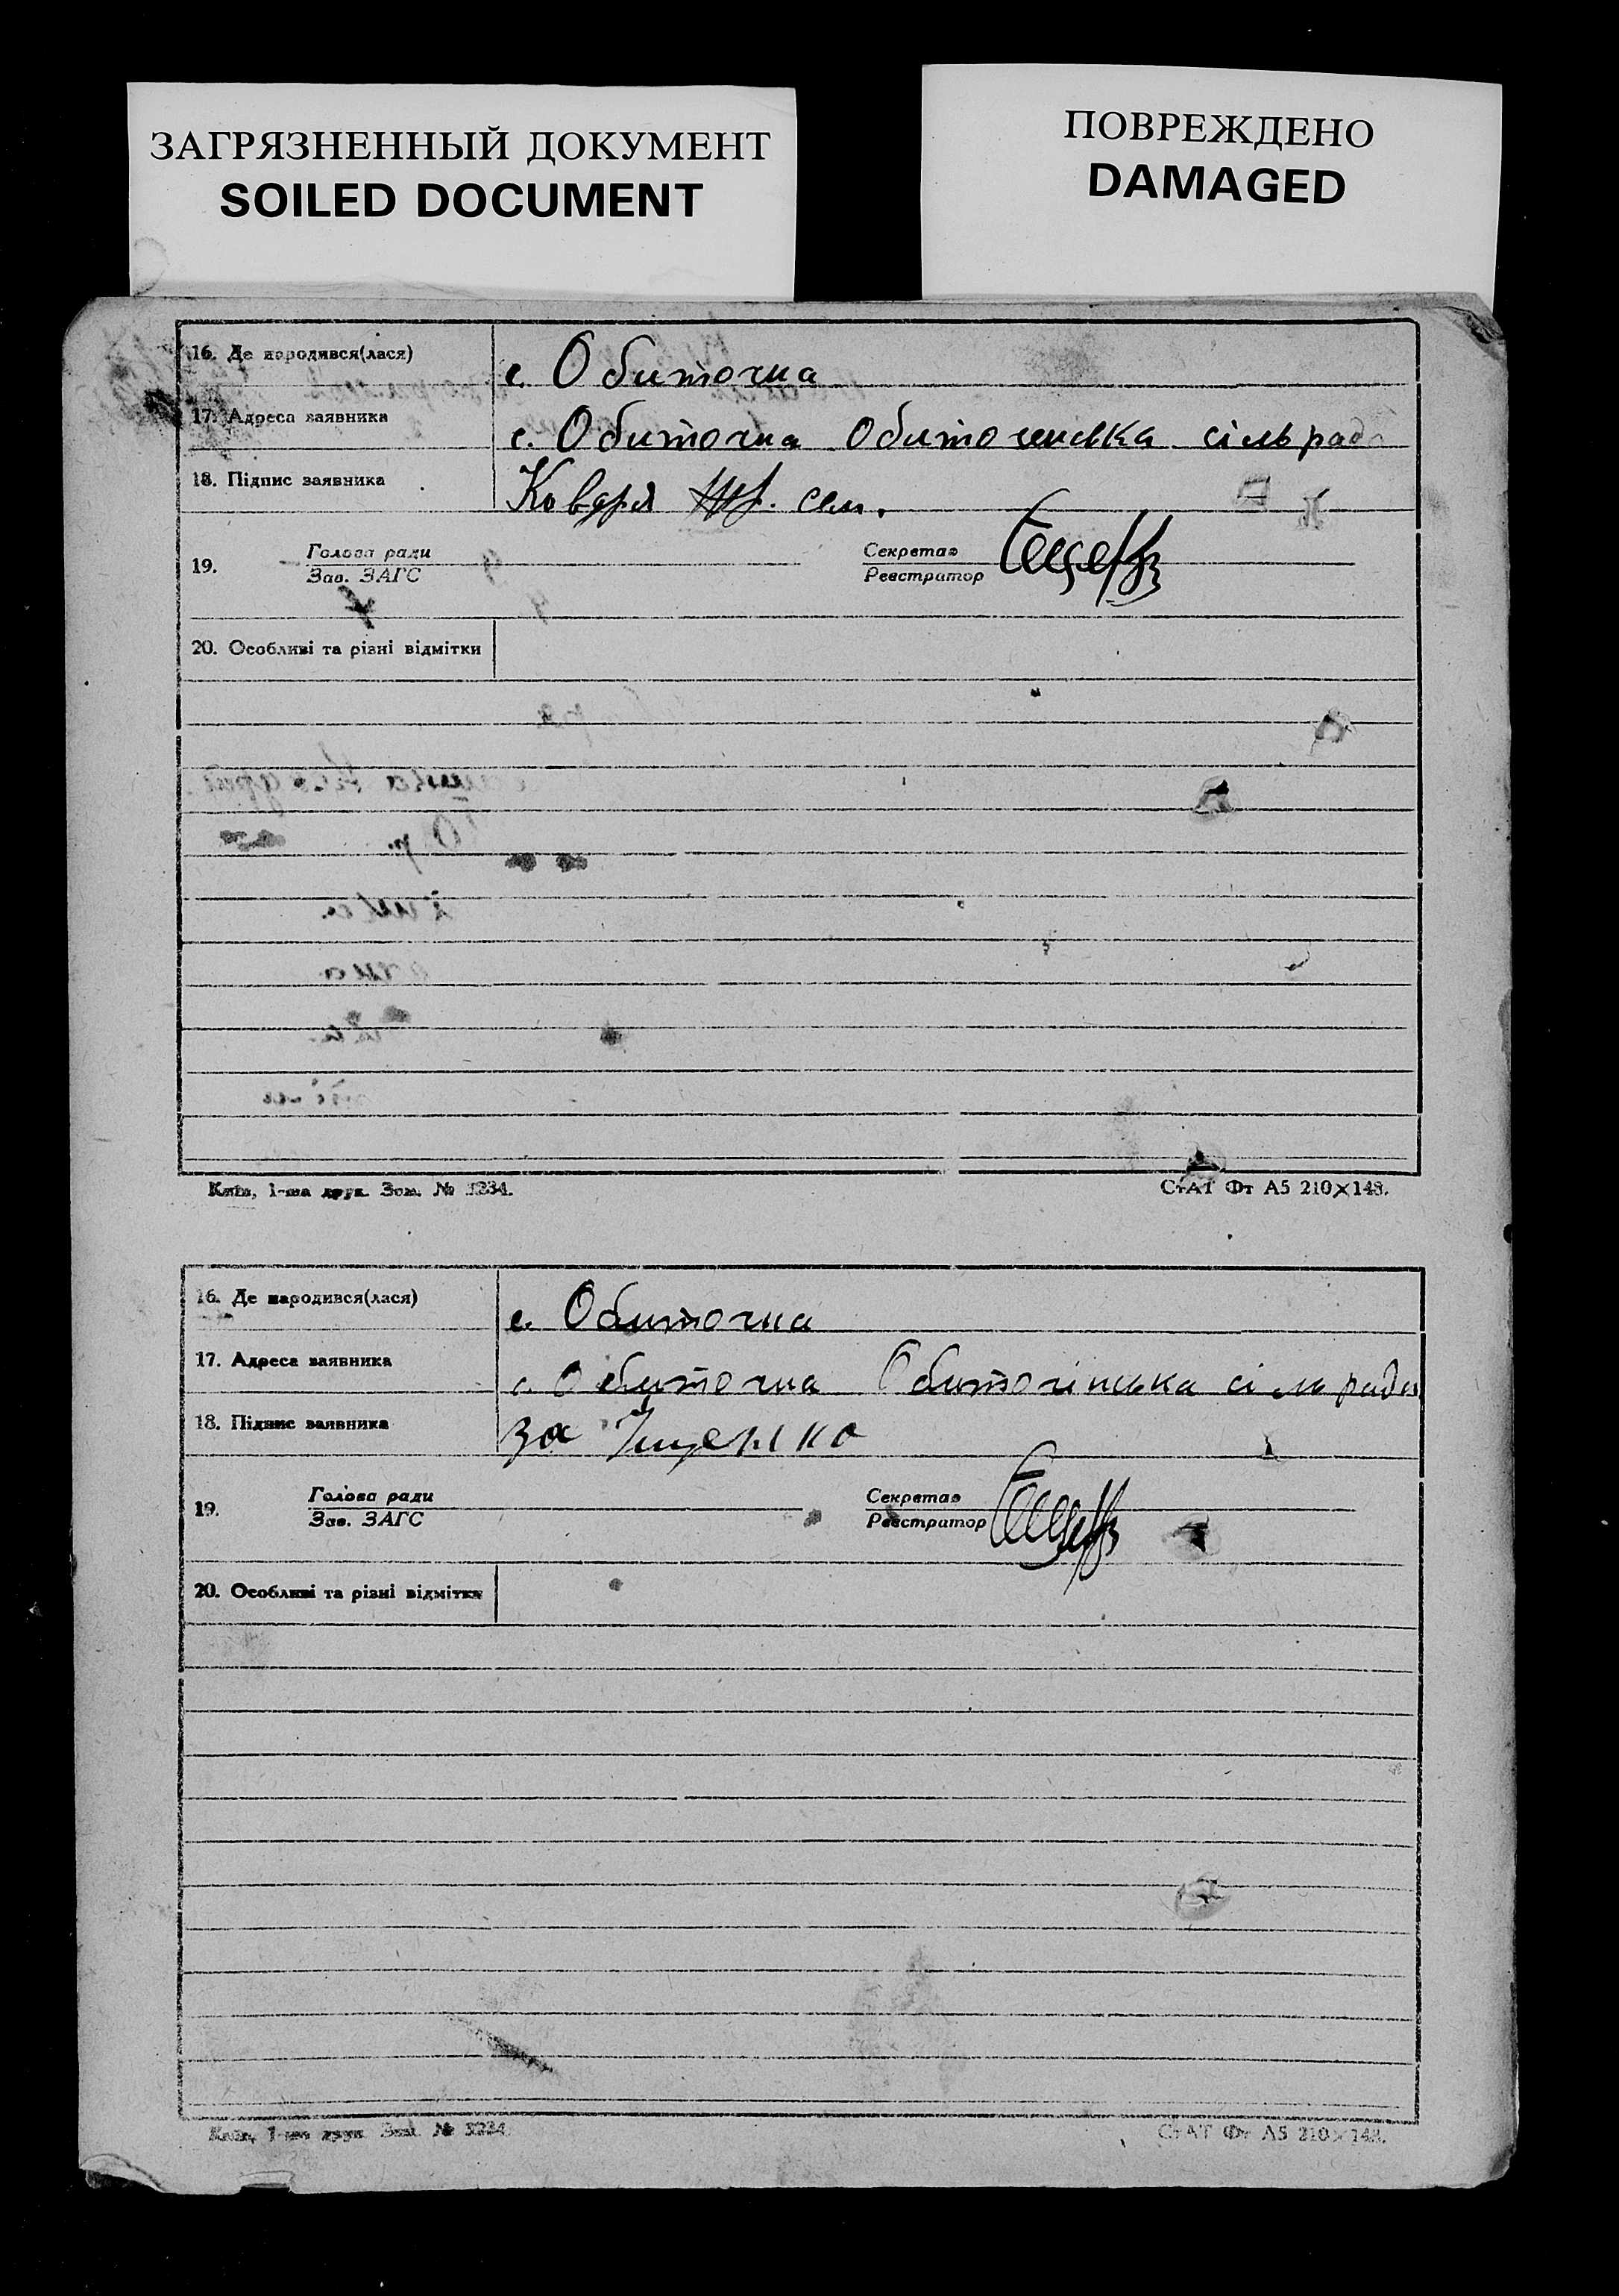 ЗАГРЯЗНЕННЫЙ ДОКУМЕНТ
SOILED DOCUMENT
ПОВРЕЖДЕНО
DAMAGED
16. Де народився(лася) с. Обиточна
17. Адреса заявника с. Обиточна Обиточенська сільрада
18. Підпис заявника
19. Голова ради Секретар
Зав. ЗАГС Реєстратор
20. Особливі та різні відмітки
Київ, 1-ша друк. Зам. № 1234. СтАТ Фт А5 210×148.
16. Де народився(лася) с. Обиточна
17. Адреса заявника с. Обиточна Обиточінська сільрада
18. Підпис заявника за
19. Голова ради Секретар
Зав. ЗАГС Реєстратор
20. Особливі та різні відмітки
Київ, 1-ша друк. Зам. № 1234 СтАТ Фт А5 210×148.